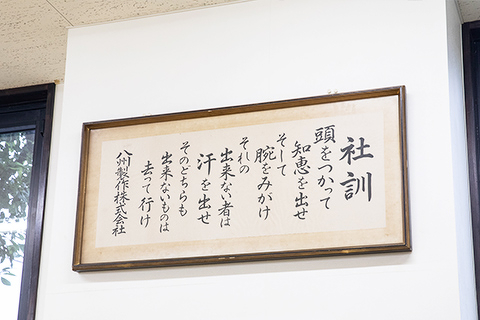 社訓
頭をつかって
知恵を出せ
そして
腕をみがけ
それの
出来ない者は
汗を出せ
そのどちらも
出来ないものは
去って行け
八州製作株式会社